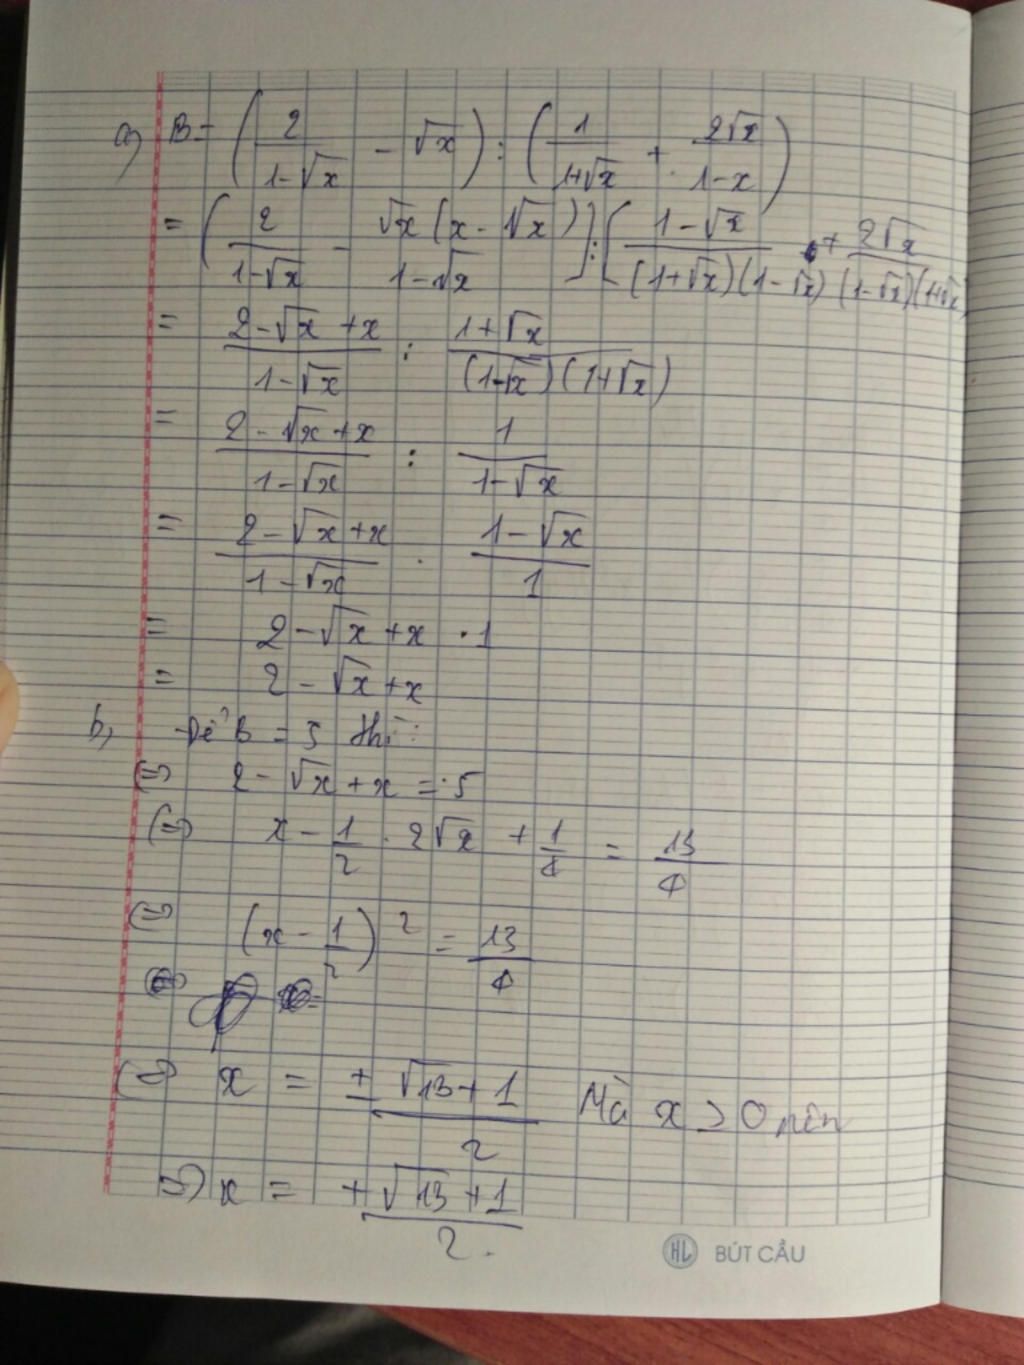 a) B = (2/(1-√x) - √x) : (1/(1+√x) + 2√x/(1-x))
= (2/(1-√x) - √x(x-√x)/(1-√x)) : [(1-√x)/((1+√x)(1-√x)) + 2√x/((1-√x)(1+√x))
= (2-√x+x)/(1-√x) : (1+√x)/((1-√x)(1+√x))
= (2-√x+x)/(1-√x) : 1/(1-√x)
= (2-√x+x)/(1-√x) . (1-√x)/1
= 2-√x+x . 1
= 2-√x+x
b, Để B = 5 thì:
(=) 2-√x+x = 5
(=) x - 1/2 . 2√x + 1/4 = 13/4
(=) (x - 1/2)² = 13/4
(=) x = ± (√13+1)/2 Mà x > 0 nên
=) x = + (√13+1)/2.
HL BÚT CẦU